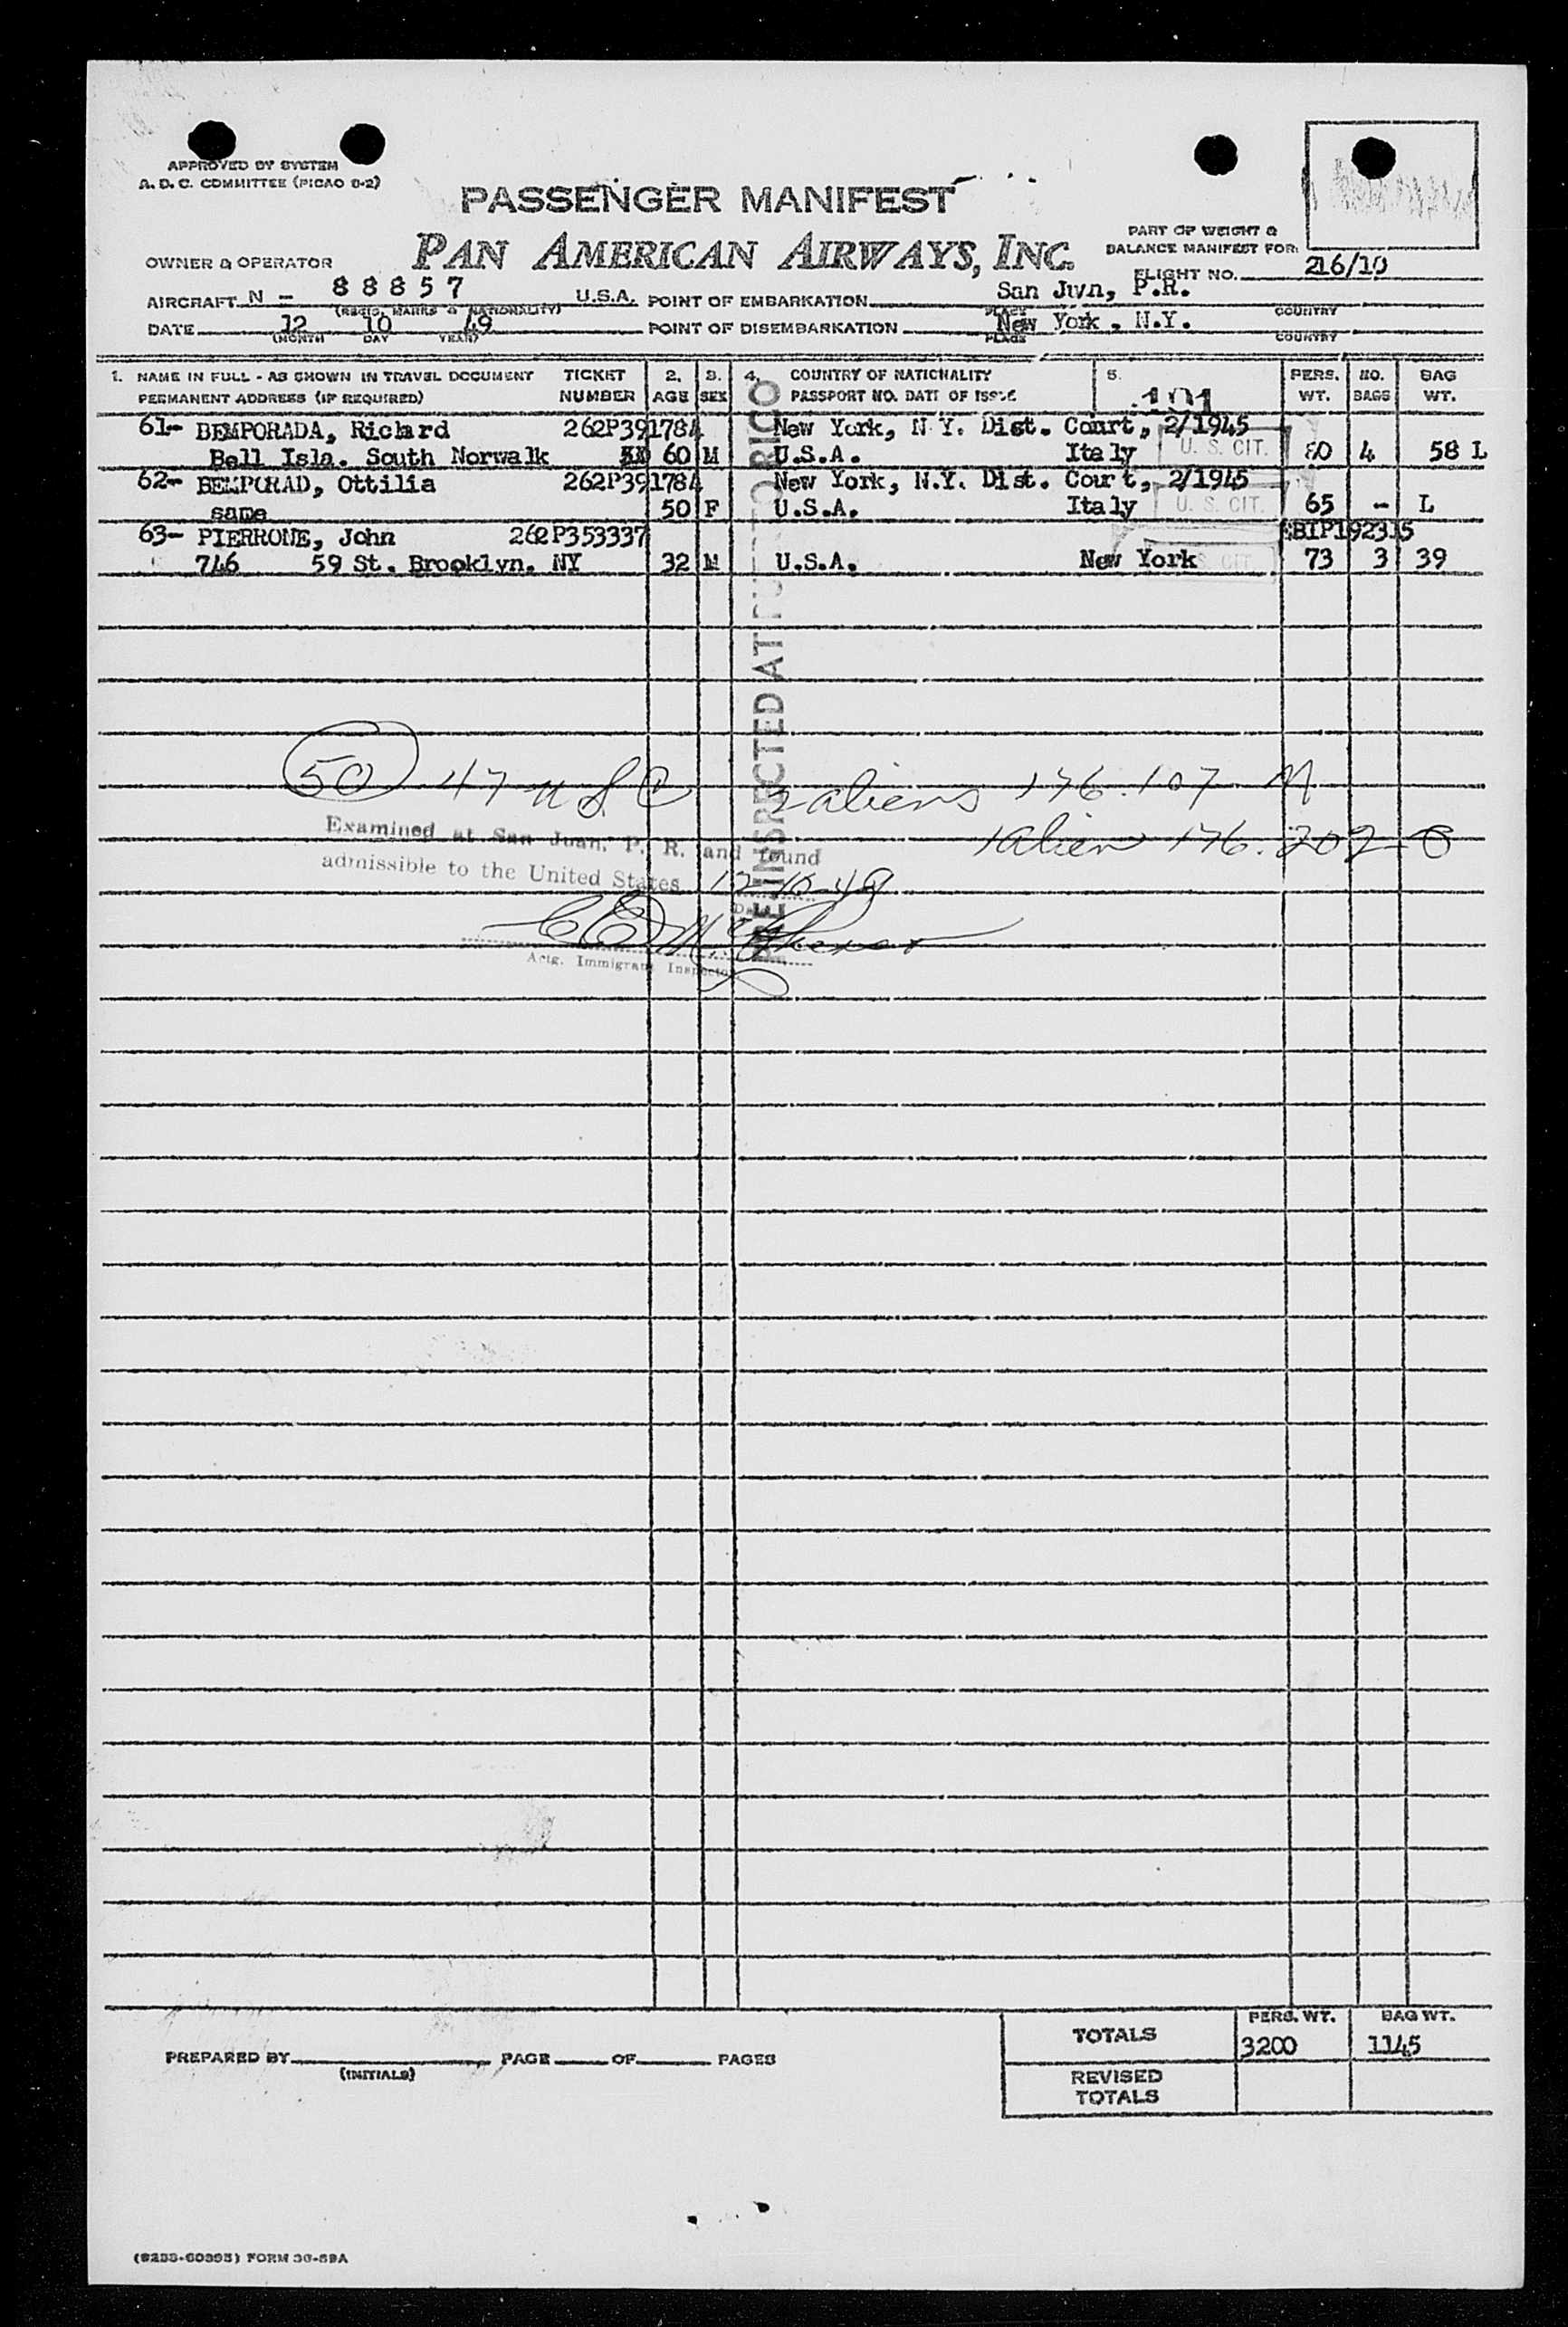 APPROVED BY SYSTEM
A. D. C. COMMITTEE (PICAO 8-2)
PASSENGER MANIFEST
PAN AMERICAN AIRWAYS, INC.
PART OF WEIGHT &
BALANCE MANIFEST FOR:
OWNER & OPERATOR
FLIGHT NO. 216/10
AIRCRAFT N - 88857 U.S.A. POINT OF EMBARKATION San Juvn, P.R.
(REGIS. MARKS & NATIONALITY) PLACE COUNTRY
DATE 12 10 49 POINT OF DISEMBARKATION New York, N.Y.
(MONTH DAY YEAR) PLACE COUNTRY
1. NAME IN FULL - AS SHOWN IN TRAVEL DOCUMENT TICKET 2. 3. 4. COUNTRY OF NATIONALITY 5. PERS. NO. BAG
PERMANENT ADDRESS (IF REQUIRED) NUMBER AGE SEX PASSPORT NO. DATE OF ISSUE 101 WT. BAGS WT.
61- BEMPORADA, Richard 262P391784 New York, N.Y. Dist. Court, 2/1945
Bell Isla. South Norwalk 60 M U.S.A. Italy U. S. CIT. 80 4 58 L
62- BEMPORAD, Ottilia 262P391784 New York, N.Y. Dist. Court, 2/1945
same 50 F U.S.A. Italy U. S. CIT. 65 - L
63- PIERRONE, John 262P353337 BIP192315
746 59 St. Brooklyn. NY 32 M U.S.A. New York S. CIT. 73 3 39
PREINSPECTED AT PUERTO RICO
50 47 USC 2 aliens 176.107 M
1 alien 176.202
Examined at San Juan, P. R. and found
admissible to the United States 12-10-49
Actg. Immigrant Inspector
TOTALS PERS. WT. BAG WT.
3200 1145
PREPARED BY PAGE OF PAGES
(INITIALS)
REVISED
TOTALS